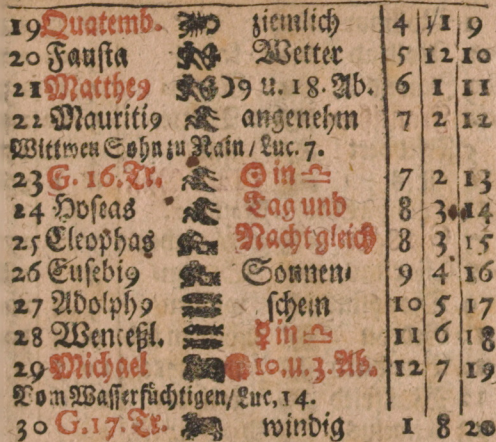 19 Quatemb. ziemlich 4 11 9
20 Fausta Wetter 5 12 10
21 Matthe9 ☽ 9 u. 18. Ab. 6 1 11
22 Mauriti9 angenehm 7 2 12
Wittwen Sohn zu Nain / Luc. 7.
23 G. 16. Tr. ☉ in ♎ 7 2 13
24 Hoseas Tag und 8 3 14
25 Cleophas Nachtgleich 8 3 15
26 Eusebi9 Sonnen- 9 4 16
27 Adolph9 schein 10 5 17
28 Wenceßl. ☿ in ♎ 11 6 18
29 Michael 10. u. 3. Ab. 12 7 19
Vom Wassersüchtigen / Luc, 14.
30 G. 17. Tr. windig 1 8 20